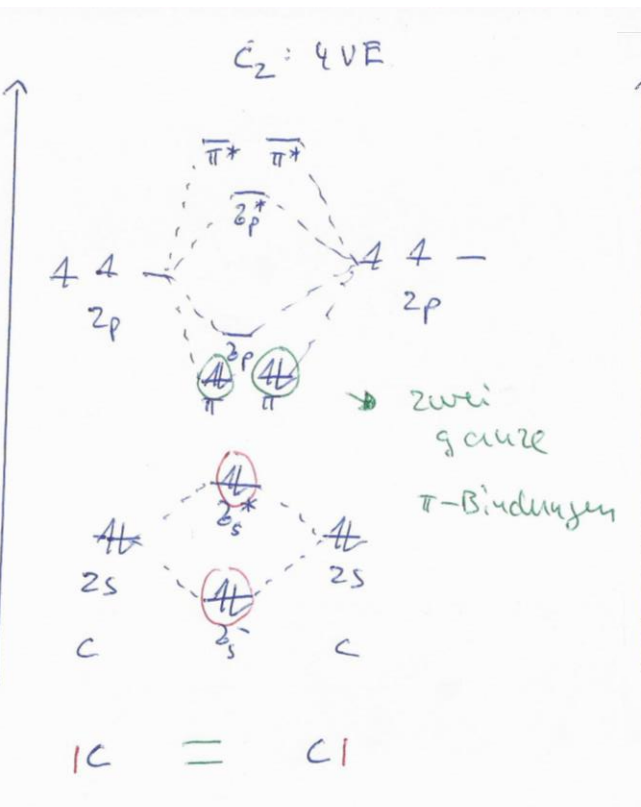 C₂: 4VE
π* π*
σp*
2p
2p
σp
π π
zwei
ganze
π-Bindungen
σs*
2s
2s
σs
C
C
|C = C|